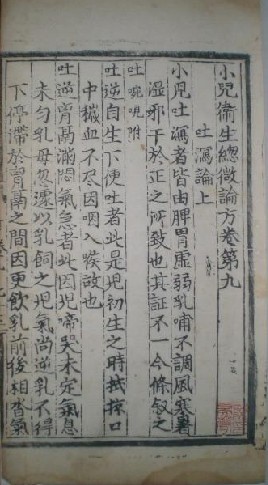 小兒衛生總微論方卷第九
吐瀉論上
小兒吐瀉者皆由脾胃虛弱乳哺不調風寒暑
濕邪干於正之所致也其証不一今條敘之
吐呃呪附
吐逆自生下便吐者此是児初生之時拭掠口
中穢血不尽因咽入喉故也
吐逆胷鬲滿悶氣急者此因児啼哭未定氣息
未匀乳母忽遽以乳飼之児氣尚逆乳不得
下停滯於胷鬲之間因更飲乳前後相沓氣